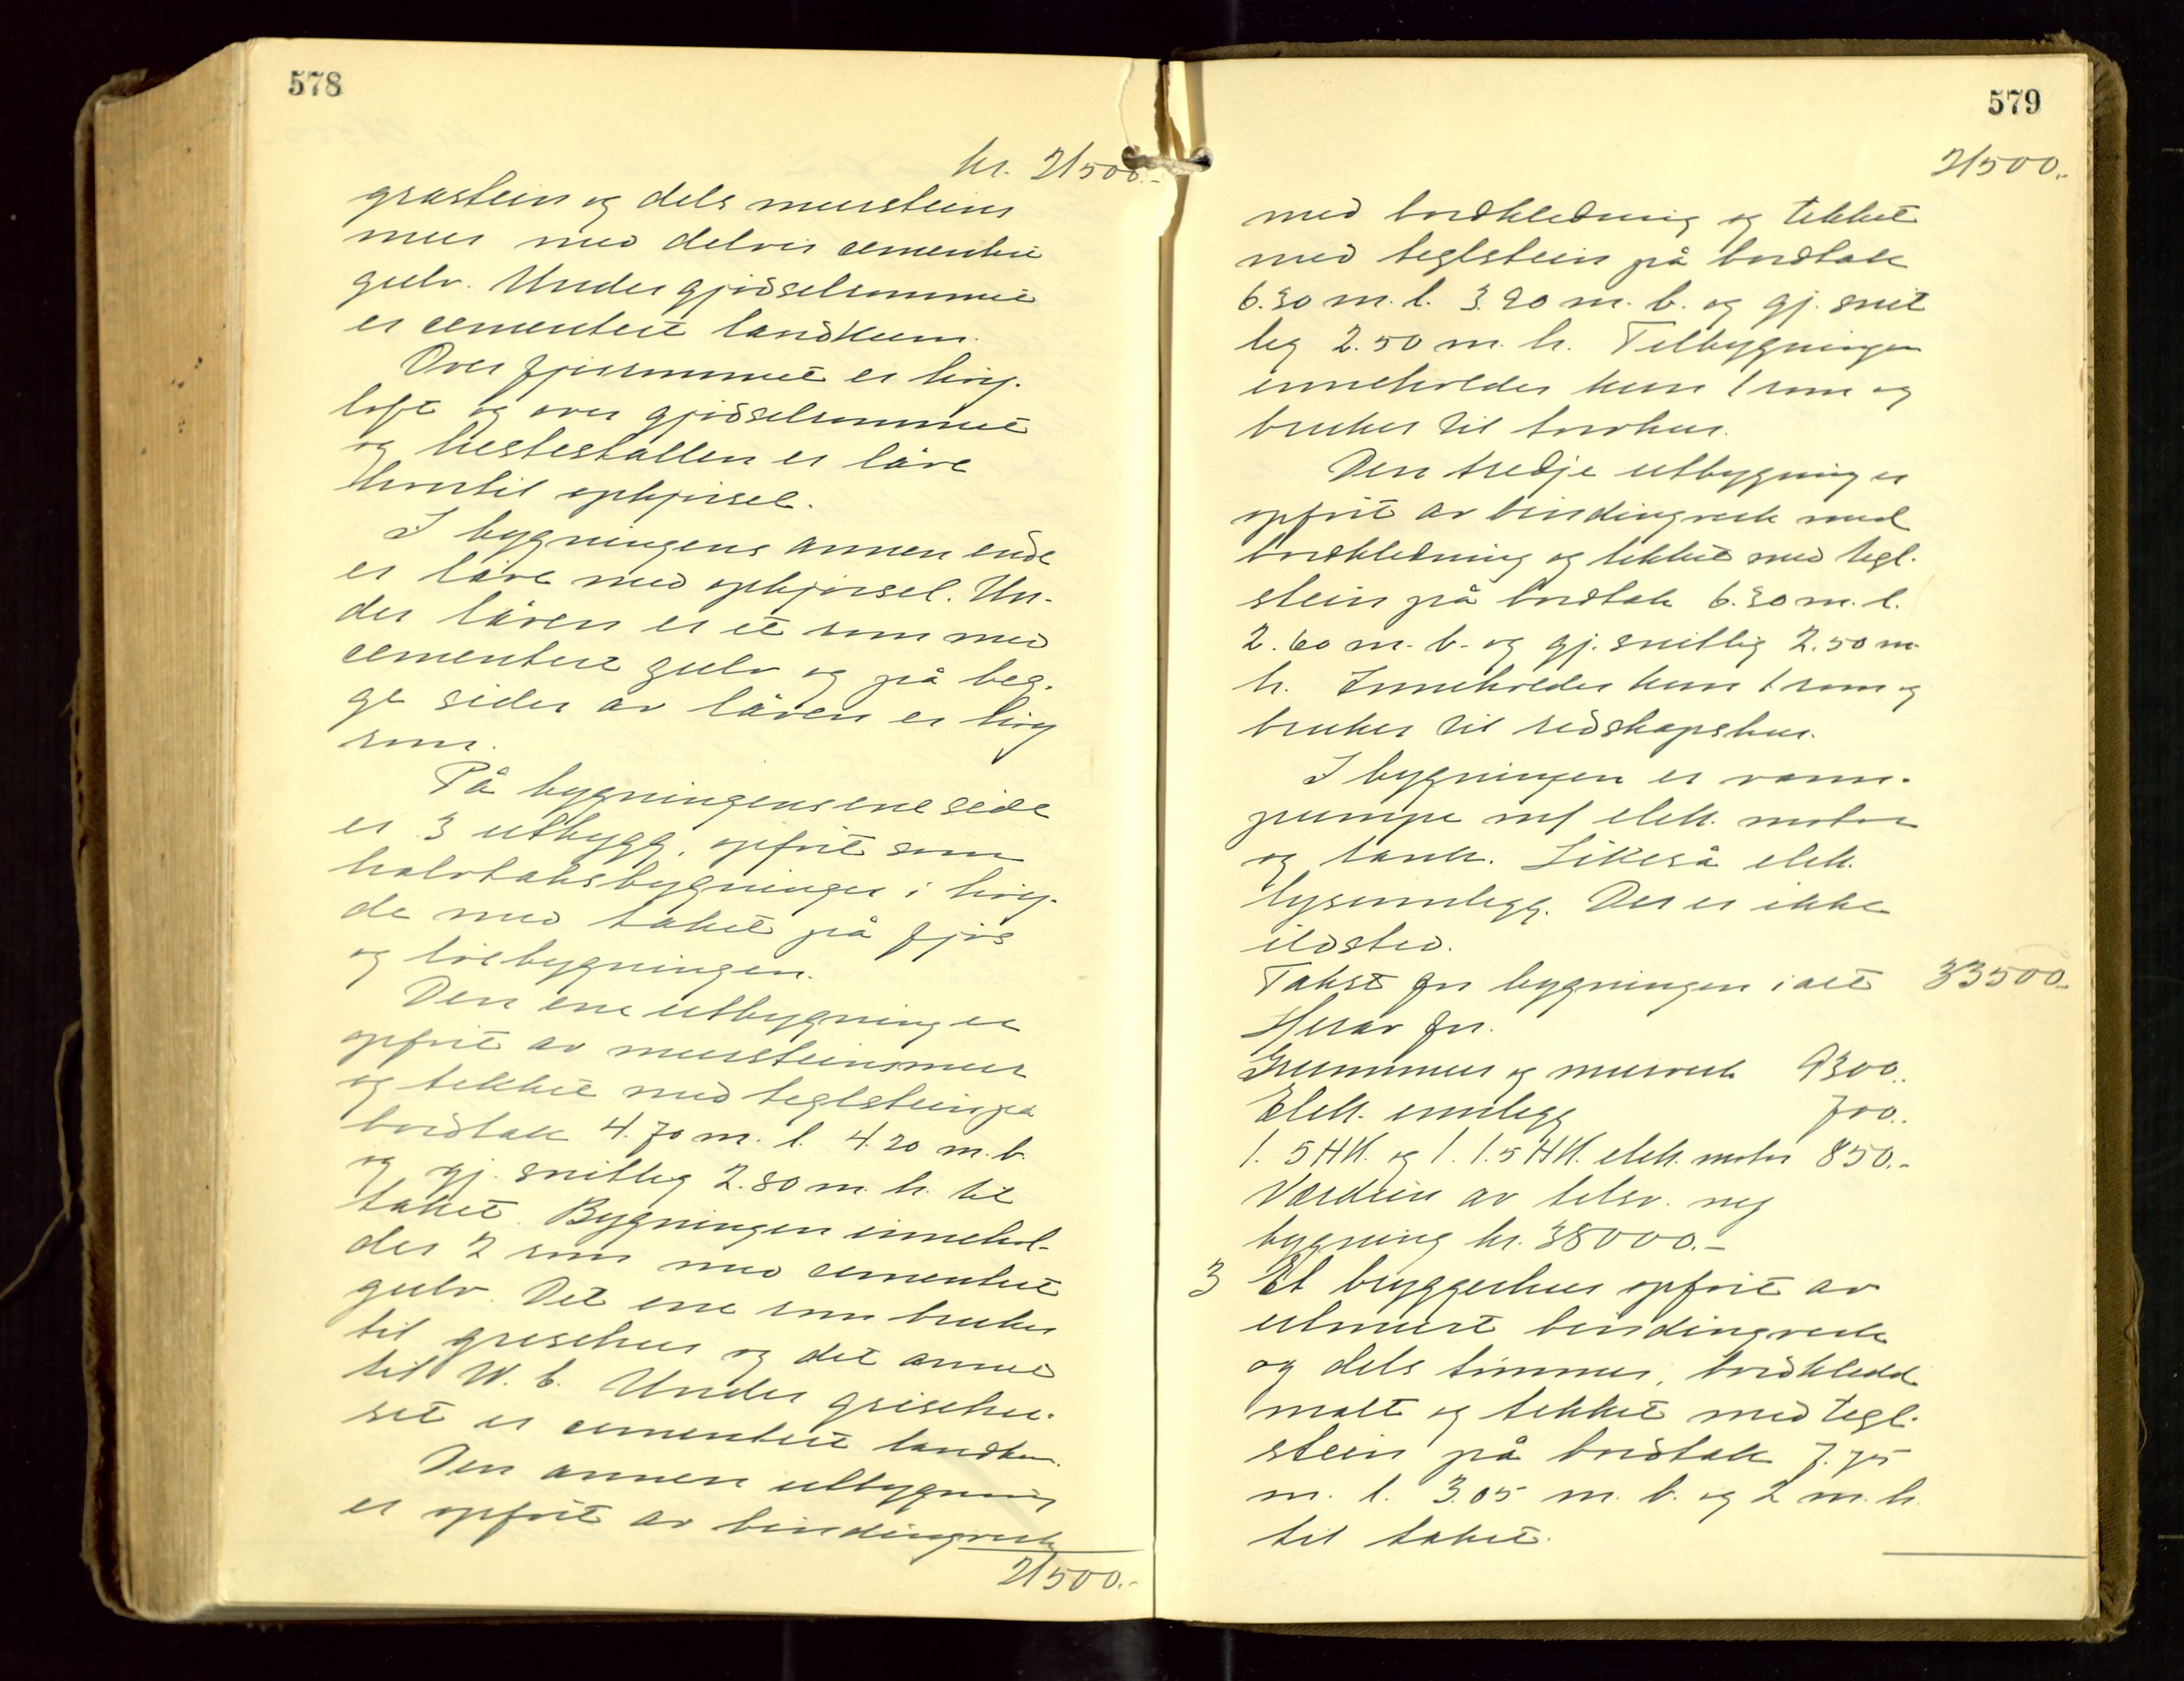 578
kr. 21500.-
gråstein og dels murstein
mur med delvis cementert
gulv. Under gjødselrummet
er cementert landkum.
Over fjøsrummet er høy-
loft og over gjødselrummet
og hestestallen er låve
hvortil opkjørsel.
I bygningens annen ende
er låve med opkjørsel. Un-
der låven er et rum med
cementert gulv og på beg-
ge sider av låven er høy
rum.
På bygningens ene side
er 3 utbygg, opført som
halvtaksbygninger i høy-
de med taket på fjøs
og løebygningen.
Den ene utbygning er
opført av murstensmur
og tekket med teglstein på
bordtak 4.70 m. l. 4.20 m. b.
og gj. snitlig 2.80 m. h. til
taket. Bygningen innehol-
der 2 rum med cementert
gulv. Det ene rum brukes
til grisehus og det annet
til W. C. Under grisehu-
set er cementert landkum.
Den annen utbygning
er opført av bindingverk
21500.-
579
21500.-
med bordkledning og tekket
med teglstein på bordtak
6.30 m. l. 3.90 m. b. og gj. snit
lig 2.50 m. h. Tilbygningen
inneholder kun 1 rum og
brukes til torvhus.
Den tredje utbygning er
opført av bindingverk med
bordkledning og tekket med tegl-
stein på bordtak 6.30 m. l.
2.60 m. b. og gj. snittlig 2.50 m
h. Inneholder kun 1 rum og
brukes til redskapshus.
I bygningen er vann-
pumpe m/ elek. motor
og tank. Likeså elek.
lysinnlegg. Der er ikke
ildsted.
Takst for bygningen i alt 33500.-
Herav for.
Grunnmur og murverk 9300.-
Elek. innlegg 700.-
1. 5 HK. og 1. 1.5 HK. elek. motor 850.-
Verdien av tilsv. ny
bygning kr. 38000.-
3 Et bryggerhus opført av
utmurt bindingverk
og dels tømmer, bordkledd
malt og tekket med tegl-
stein på bordtak 7.75
m. l. 3.05 m. b. og 2 m. h.
til taket.